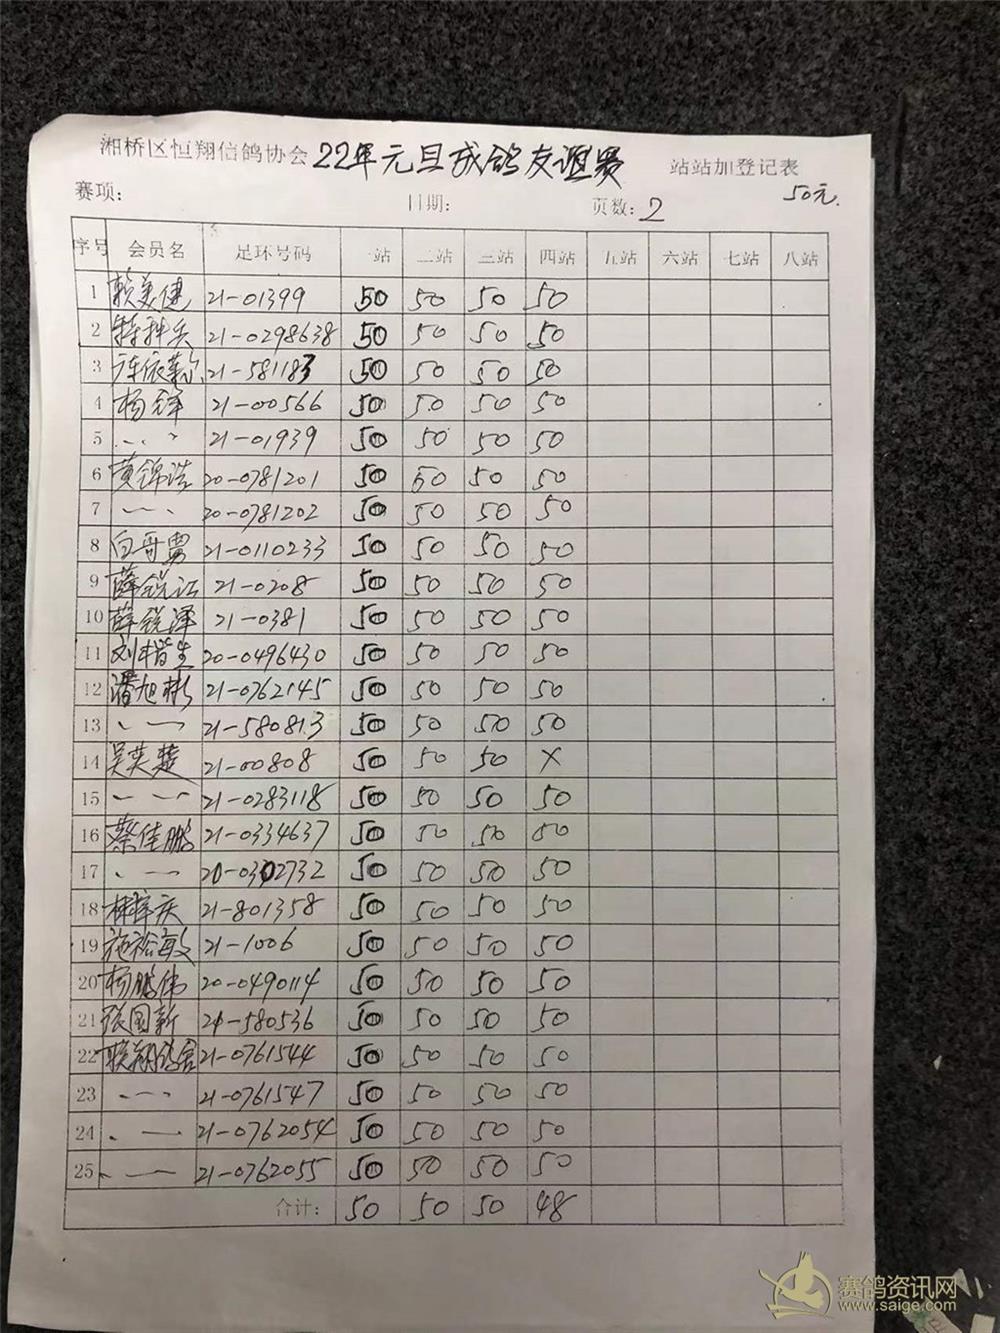 湘桥区恒翔信鸽协会 22年元旦成鸽友谊赛 站站加登记表
赛项: 日期: 页数: 2 50元.
序号 会员名 足环号码 一站 二站 三站 四站 五站 六站 七站 八站
1 赖美健 21-01399 50 50 50 50
2 特种兵 21-0298638 50 50 50 50
3 21-581183 50 50 50 50
4 杨锋 21-00566 50 50 50 50
5 21-01939 50 50 50 50
6 黄锦浩 20-0781201 50 50 50 50
7 20-0781202 50 50 50 50
8 21-0110233 50 50 50 50
9 薛锐江 21-0208 50 50 50 50
10 薛锐泽 21-0381 50 50 50 50
11 刘楷生 20-0496430 50 50 50 50
12 潘旭彬 21-0762145 50 50 50 50
13 21-580813 50 50 50 50
14 吴英楚 21-00808 50 50 50 ×
15 21-0283118 50 50 50 50
16 蔡佳鹏 21-0334637 50 50 50 50
17 20-0302732 50 50 50 50
18 林梓庆 21-801358 50 50 50 50
19 施裕敏 21-1006 50 50 50 50
20 杨鹏伟 20-0490114 50 50 50 50
21 张国新 21-580536 50 50 50 50
22 联翔鸽舍 21-0761544 50 50 50 50
23 21-0761547 50 50 50 50
24 21-0762054 50 50 50 50
25 21-0762055 50 50 50 50
合计: 50 50 50 48
赛鸽资讯网
www.saige.com